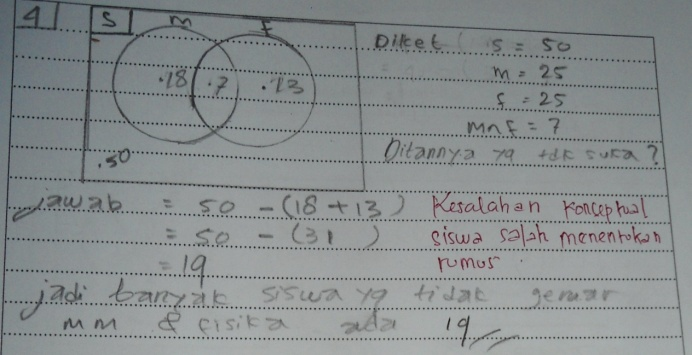 4 S m f
.18 .7 .13
.50
Diket S = 50
m = 25
f = 25
m∩f = 7
Ditannya yg tdk suka?
Jawab = 50 - (18 + 13)
= 50 - (31 )
= 19
Kesalahan Konceptual
siswa salah menentukan
rumus.
jadi banyak siswa yg tidak gemar
mm & fisika ada 19